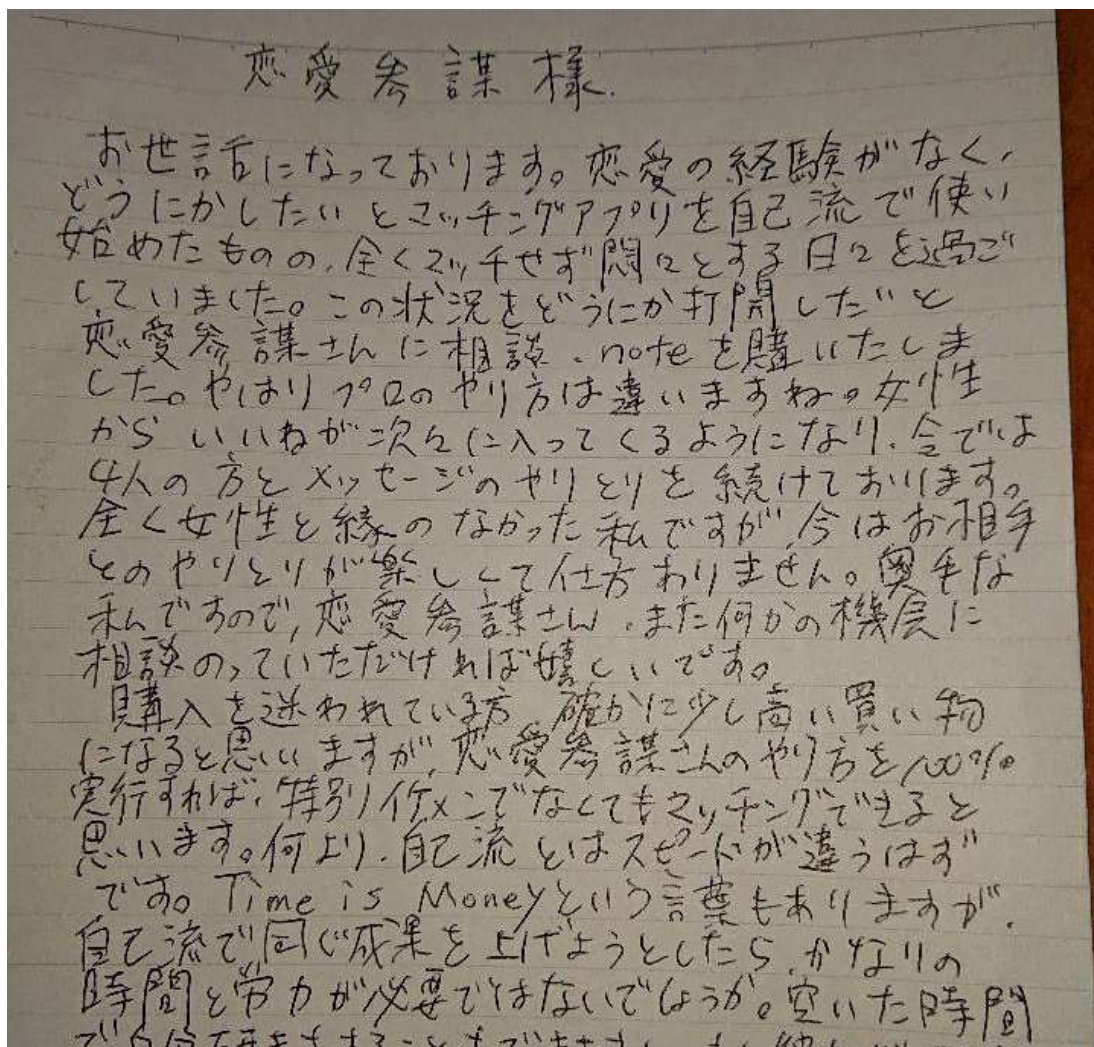 恋愛参謀様.
お世話になっております。恋愛の経験がなく、
どうにかしたいとマッチングアプリを自己流で使い
始めたものの、全くマッチせず悶々とする日々を過ご
していました。この状況をどうにか打開したいと
恋愛参謀さんに相談、noteを購いたしま
した。やはりプロのやり方は違いますね。女性
からいいねが次々に入ってくるようになり、今では
4人の方とメッセージのやりとりを続けております。
全く女性と縁のなかった私ですが、今はお相手
とのやりとりが楽しくて仕方わりません。奥手な
私ですので、恋愛参謀さん、また何かの機会に
相談のっていただければ嬉しいです。
購入を迷われている方 確かに少し高い買い物
になると思いますが、恋愛参謀さんのやり方を100%
実行すれば、特別イケメンでなくてもマッチングできると
思います。何より、自己流とはスピードが違うはず
です。Time is Moneyという言葉もありますが、
自己流で同じ成果を上げようとしたら、かなりの
時間と労力が必要ではないでしょうか。空いた時間